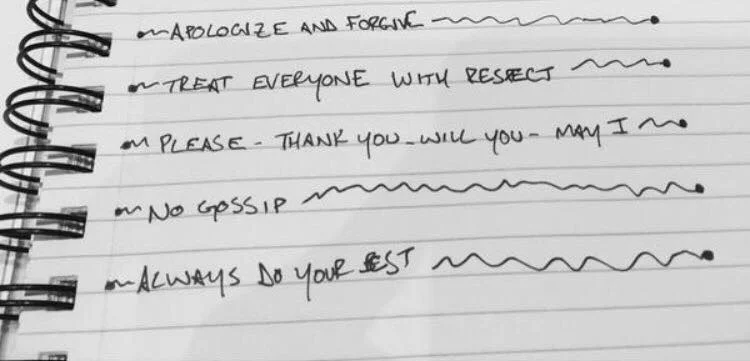 APOLOGIZE AND FORGIVE
TREAT EVERYONE WITH RESPECT
PLEASE - THANK YOU - WILL YOU - MAY I
NO GOSSIP
ALWAYS DO YOUR BEST